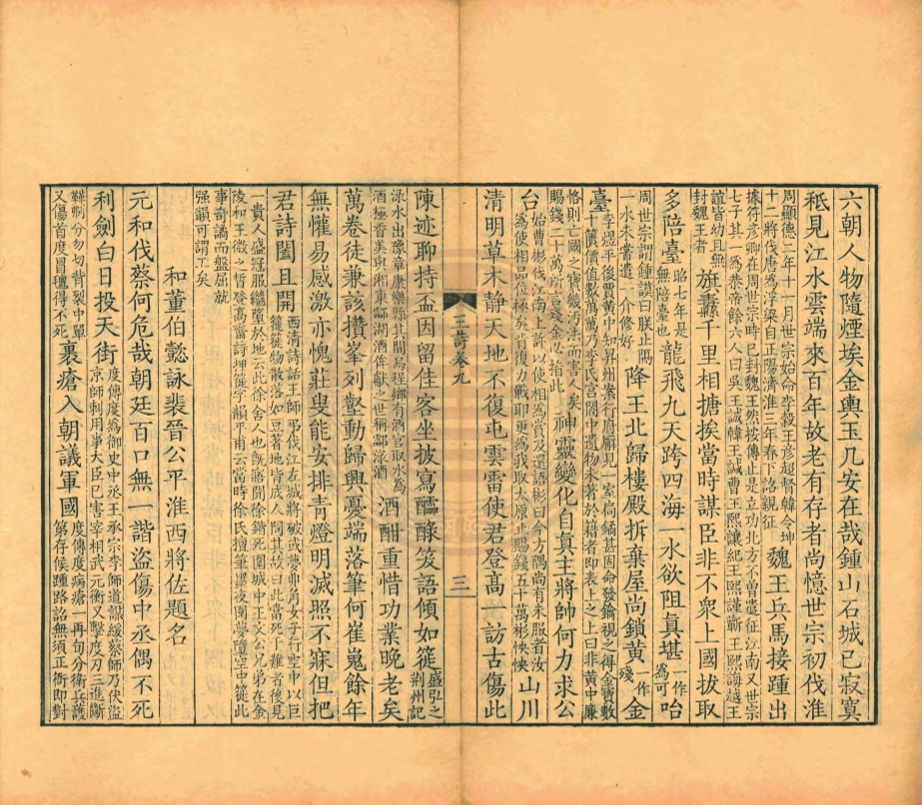 六朝人物隨煙埃金輿玉几安在哉鍾山石城已寂寞
秪見江水雲端來百年故老有存者尚憶世宗初伐淮
周顯德二年十一月世宗始命李穀王彥超督韓令坤
十二將伐唐爲浮梁自正陽濟淮三年春下詔親征
魏王兵馬接踵出
據符彥卿在周世宗時已封魏王然按傳止是立功北方不曾遣征江南又世宗
七子其一爲恭帝餘六人曰吳王誠韓王誠曹王熙讓紀王熙謹蘄王熙誨越王
誼皆幼且無
封魏王者
旌纛千里相搪挨當時謀臣非不衆上國拔取
多陪臺
昭七年是
無陪臺也
龍飛九天跨四海一水欲阻真堪
一作
爲可
咍
周世宗謂鍾謨曰朕止隔
一水未嘗遣一介修好
降王北歸樓殿拆棄屋尚鎖黃
一作
殘
金
臺
李煜平後賈黃中知昇州案行府廨見一室扃鐍甚固命發鑰視之得金寶數
十櫃價值數百萬乃李氏宮閤中遺物未著於籍者即表上之上曰非黃中廉
恪則亡國之寶幾污法而害人矣
賜錢二十萬所言殘金恐指此
神靈變化自真主將帥何力求公
台
始曹彬伐江南上許以使相爲賞及還語彬曰今方隅尚有未服者汝
爲使相品位極矣肯復力戰耶更爲我取太原止賜錢五十萬彬怏怏
山川
清明草木靜天地不復屯雲雷使君登高一訪古傷此
王詩卷九
三
陳迹聊持盃因留佳客坐披寫醽醁笑語傾如簁
盛弘之
荊州記
淥水出豫章康樂縣其間烏程鄉有酒官取水爲
酒極香美與湘東酃湖酒年獻之世稱酃淥酒
酒酣重惜功業晚老矣
萬卷徒兼該攢峯列壑動歸興憂端落筆何崔嵬餘年
無懽易感激亦愧莊叟能安排青燈明滅照不寐但把
君詩闔且開
西清詩話王師弔伐江左城將破或夢丱角女子行空中以巨
簁簁物散落如豆著地皆成人問其故曰此當死于難者後見
一貴人盛冠服繼墮於地云此徐舍人也旣寤聞徐鍇死圍城中王文公兄弟在金
陵和王微之晳登高齋詩押簁字韻平甫云當時徐氏擅筆墨夜圍夢墮空中簁此
事奇譎而盤屈就
强韻可謂工矣
和董伯懿詠裴晉公平淮西將佐題名
元和伐蔡何危哉朝廷百口無一諧盜傷中丞偶不死
利劍白日投天街
度傳度爲御史中丞王承宗李師道謀緩蔡師乃伏盜
京師刺用事大臣已害宰相武元衡又擊度刃三進斷
鞾刜分勿切背裂中單
又傷首度冒氊得不死
裹瘡入朝議軍國
度傳度病瘡一再旬分衛兵護
第存候踵路詔無須正衙即對